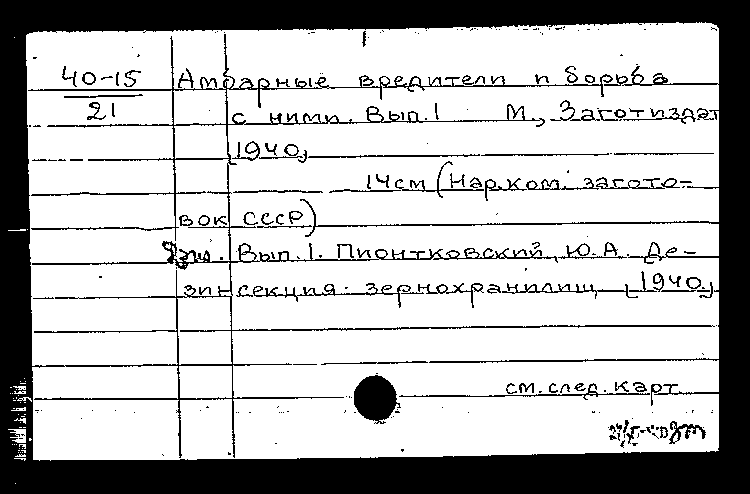 40-15
21
Амбарные вредители и борьба
с ними. Вып.1 М., Заготиздат
[1940]
14см (Нар.ком. загото-
вок СССР)
Вып.1. Пионтковский, Ю.А. Де-
зинсекция зернохранилищ [1940]
см. след. карт.